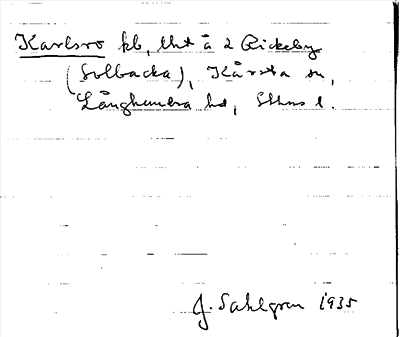 Karlsro lb, Uht å 2 Rickeby
(Solbacka), Kårsta sn,
Långhundra hd, Sthms l.
J. Sahlgren 1935